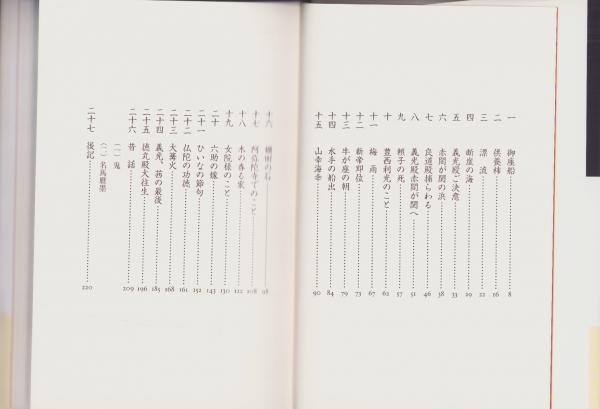 一 御座船……8
二 供養柿……16
三 漂流……22
四 断崖の海……29
五 義光殿ご決意……33
六 赤間が関の浜……38
七 良道殿捕らわる……46
八 義光殿赤間が関へ……51
九 頼子の死……57
十 豊西利光のこと……62
十一 梅雨……67
十二 新帝即位……73
十三 牛が座の朝……79
十四 水手の船出……84
十五 山幸海幸……90
十六 の石……98
十七 阿弥陀寺でのこと……108
十八 木の香る家……122
十九 女院様のこと……130
二十 六助の嫁……143
二十一 ひいなの節句……152
二十二 仏陀の功徳……161
二十三 大篝火……168
二十四 義光、茜の最後……185
二十五 徳丸殿大往生……196
二十六 昔話……209
(一) 鬼
(二) 名馬磨墨
二十七 後記……220